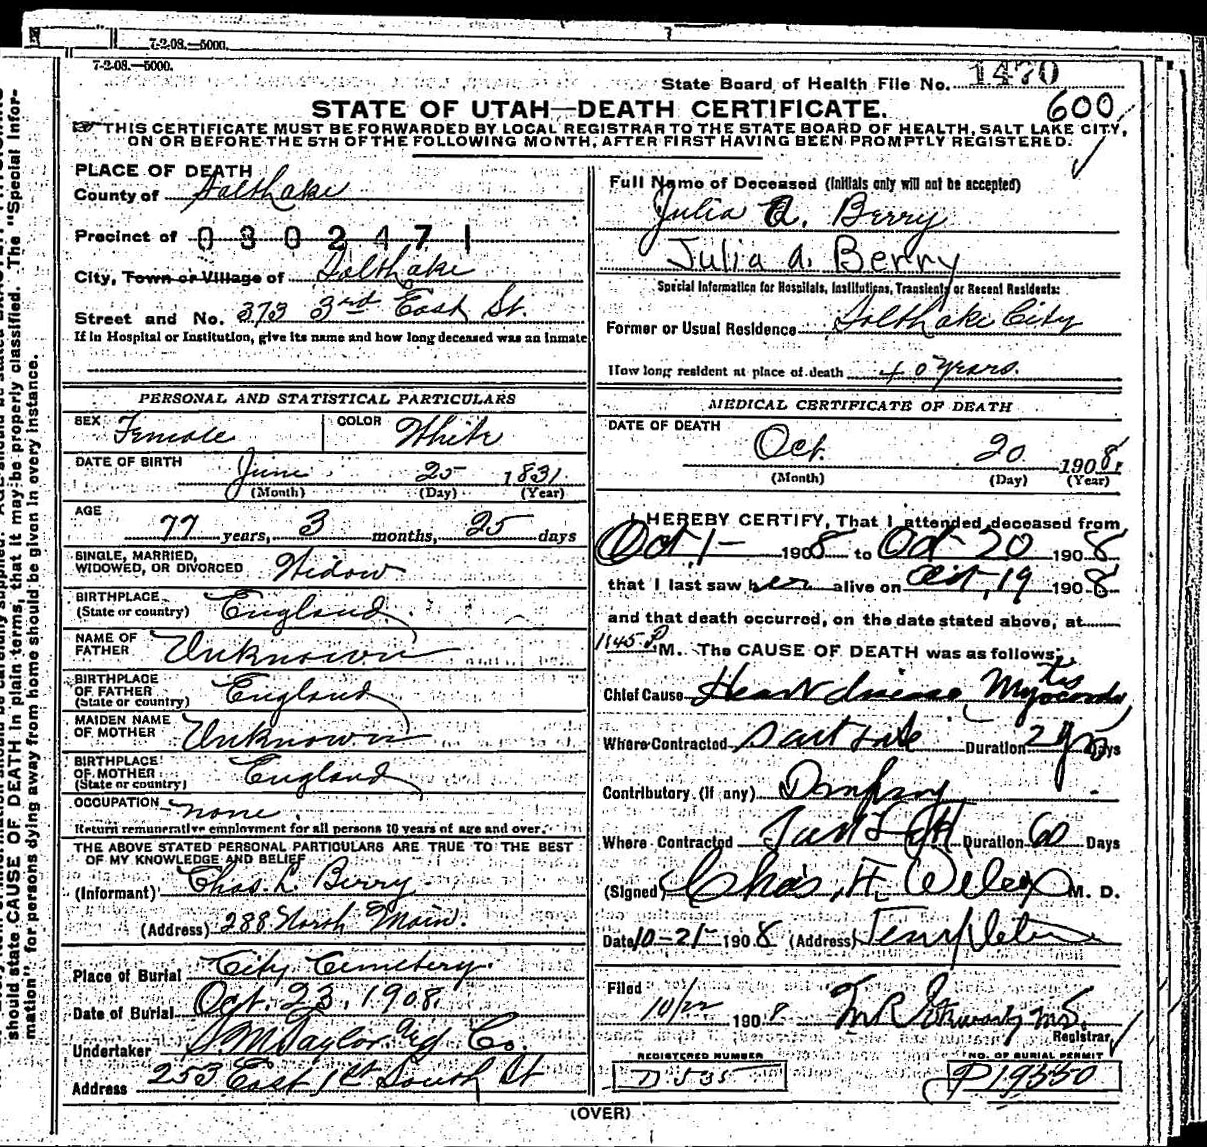 7-2-08.—5000.
7-2-08.—5000.
State Board of Health File No. 1470
STATE OF UTAH—DEATH CERTIFICATE.
600
THIS CERTIFICATE MUST BE FORWARDED BY LOCAL REGISTRAR TO THE STATE BOARD OF HEALTH, SALT LAKE CITY,
ON OR BEFORE THE 5TH OF THE FOLLOWING MONTH, AFTER FIRST HAVING BEEN PROMPTLY REGISTERED.
PLACE OF DEATH
County of Salt Lake
Precinct of 0302471
City, Town or Village of Salt Lake
Street and No. 373 3rd East St.
If in Hospital or Institution, give its name and how long deceased was an inmate
PERSONAL AND STATISTICAL PARTICULARS
SEX Female COLOR White
DATE OF BIRTH June 25 1831
(Month) (Day) (Year)
AGE
77 years, 3 months, 25 days
SINGLE, MARRIED,
WIDOWED, OR DIVORCED Widow
BIRTHPLACE
(State or country) England
NAME OF
FATHER Unknown
BIRTHPLACE
OF FATHER
(State or country) England
MAIDEN NAME
OF MOTHER Unknown
BIRTHPLACE
OF MOTHER
(State or country) England
OCCUPATION none
Return remunerative employment for all persons 10 years of age and over.
THE ABOVE STATED PERSONAL PARTICULARS ARE TRUE TO THE BEST
OF MY KNOWLEDGE AND BELIEF
(Informant) Chas. L. Berry
(Address) 288 North Main.
Place of Burial City Cemetery.
Date of Burial Oct. 23, 1908.
Undertaker S. M. Taylor Co.
Address 253 East 1st South St
Full Name of Deceased (Initials only will not be accepted)
Julia A. Berry
Julia A. Berry
Special Information for Hospitals, Institutions, Transients or Recent Residents:
Former or Usual Residence Salt Lake City
How long resident at place of death 40 years.
MEDICAL CERTIFICATE OF DEATH
DATE OF DEATH
Oct. 20 1908.
(Month) (Day) (Year)
I HEREBY CERTIFY, That I attended deceased from
Oct 1- 1908 to Oct-20 1908
that I last saw her alive on Oct, 19 1908
and that death occurred, on the date stated above, at
1145 P. M. The CAUSE OF DEATH was as follows:
Chief Cause Heart disease, Myocarditis
Where Contracted Salt Lake Duration 2 yrs Days
Contributory (if any) Dropsy
Where Contracted Duration 60 Days
(Signed) Chas, F. Wilcox M. D.
Date 10-21- 1908 (Address) Templeton
Filed
10/22 1908
Registrar
REGISTERED NUMBER
D 535
NO. OF BURIAL PERMIT
P19330
(OVER)
should state CAUSE OF DEATH in plain terms, that it may be properly classified. The "Special Infor-
mation" for persons dying away from home should be given in every instance.